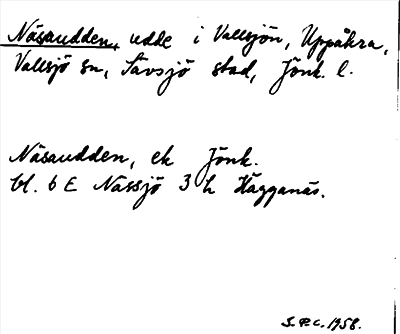 Näsaudden, udde i Vallsjön, Uppåkra,
Vallsjö sn, Sävsjö stad, Jönk. l.
Näsaudden, ek Jönk.
bl. 6 E Nässjö 3 h Hägganäs.
S.P.C. 1958.